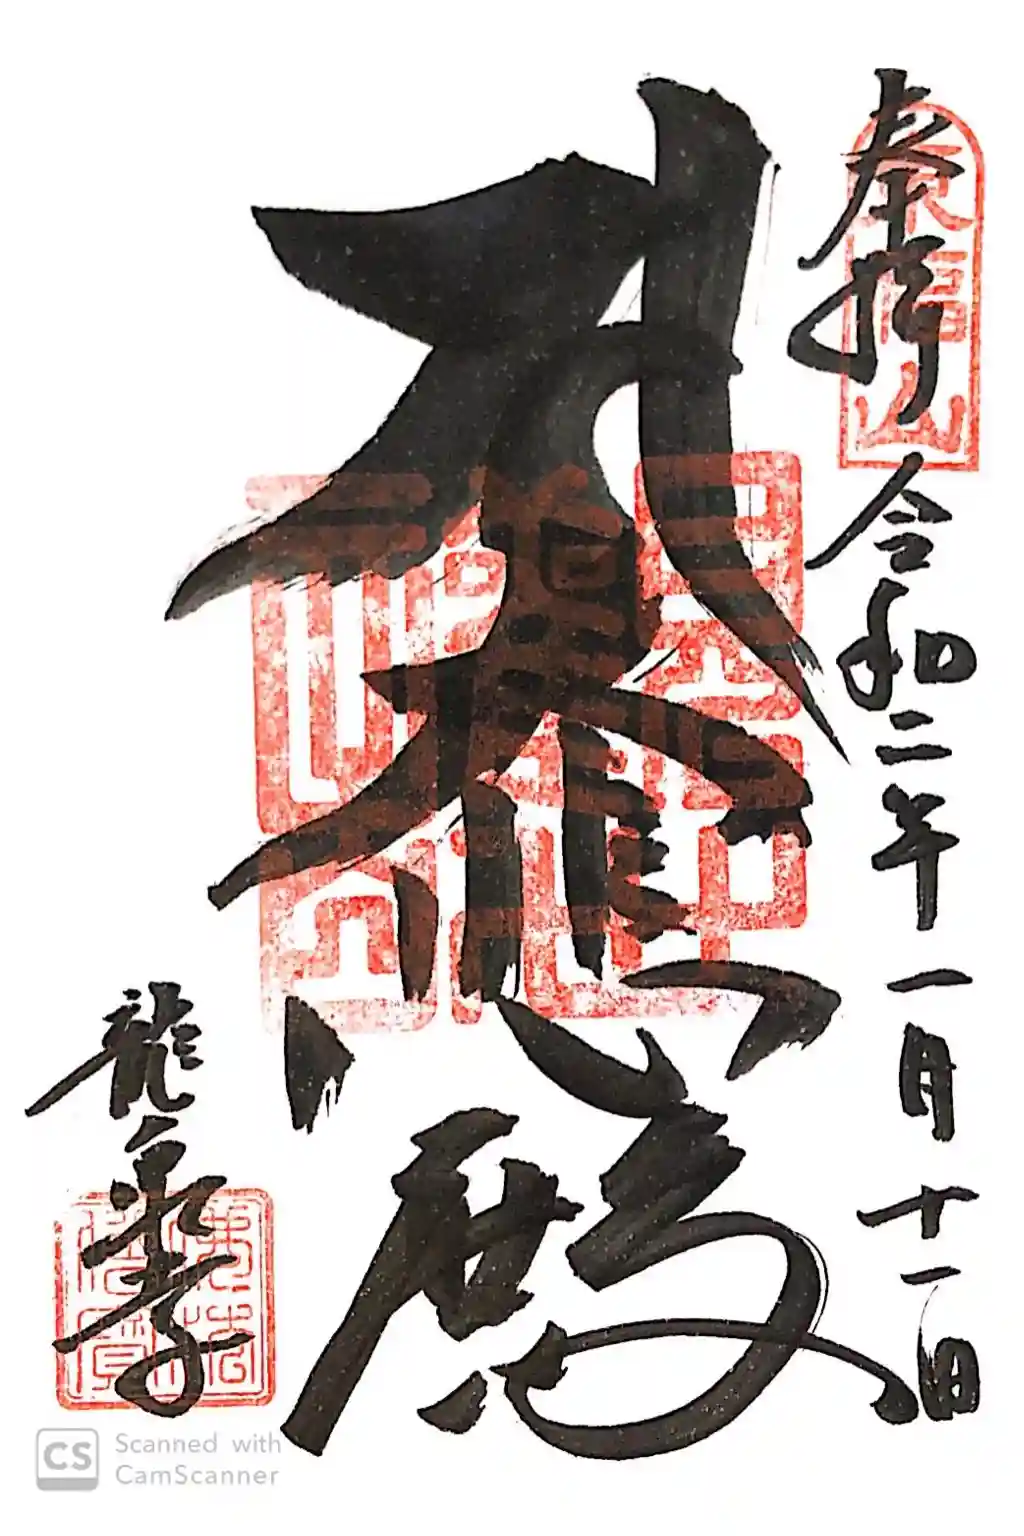 奉拝
令和二年一月十一日
大悲殿
龍泉寺
佛法僧寶
CS Scanned with
CamScanner